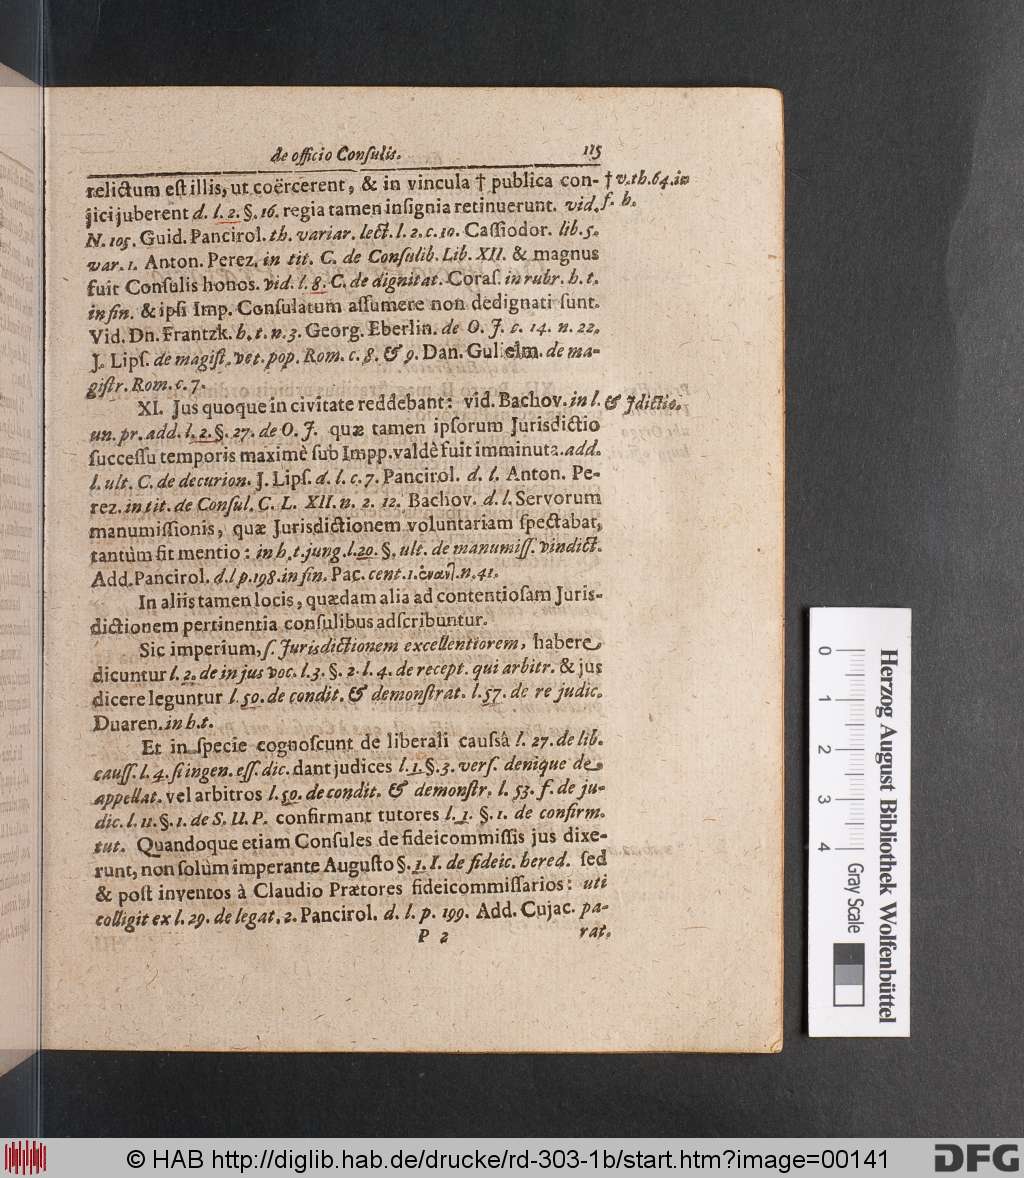 de officio Conſulis. 115
relictum eſt illis, ut coërcerent, & in vincula † publica con-
jici juberent d. l. 2. §. 16. regia tamen inſignia retinuerunt. vid.
N. 105. Guid. Pancirol. th. variar. lect. l. 2. c. 10. Caſſiodor. lib. 5.
var. 1. Anton. Perez. in tit. C. de Conſulib. Lib. XII. & magnus
fuit Conſulis honos. vid. l. 8. C. de dignitat. Coraſ. in rubr. h. t.
in fin. & ipſi Imp. Conſulatum aſſumere non dedignati ſunt.
Vid. Dn. Frantzk. h. t. n. 3. Georg. Eberlin. de O. J. c. 14. n. 22.
J. Lipſ. de magiſt. vet. pop. Rom. c. 8. & 9. Dan. Gulielm. de ma-
giſtr. Rom. c. 7.
† v. th. 64. in
f. h.
XI. Jus quoque in civitate reddebant: vid. Bachov. in l.
un. pr. add. l. 2. §. 27. de O. J. quæ tamen ipſorum Jurisdictio
ſucceſſu temporis maximè ſub Impp. valdè fuit imminuta. add.
l. ult. C. de decurion. J. Lipſ. d. l. c. 7. Pancirol. d. l. Anton. Pe-
rez. in tit. de Conſul. C. L. XII. n. 2. 12. Bachov. d. l. Servorum
manumiſſionis, quæ Jurisdictionem voluntariam ſpectabat,
tantùm fit mentio: in h. t. jung. l. 20. §. ult. de manumiſſ. vindict.
Add. Pancirol. d. l p. 198. in fin. Pac. cent. 1. n. 41.
& Jdictio.
In aliis tamen locis, quædam alia ad contentioſam Juris-
dictionem pertinentia conſulibus adſcribuntur.
Sic imperium, ſ. Jurisdictionem excellentiorem, habere
dicuntur l. 2. de in jus voc. l. 3. §. 2. l. 4. de recept. qui arbitr. & jus
dicere leguntur l. 50. de condit. & demonſtrat. l. 57. de re judic.
Duaren. in h. t.
Et in ſpecie cognoſcunt de liberali cauſsâ l. 27. de lib.
cauſſ. l. 4. ſi ingen. eſſ. dic. dant judices l. 1. §. 3. verſ. denique de
appellat. vel arbitros l. 50. de condit. & demonſtr. l. 53. f. de ju-
dic. l. 11. §. 1. de S. U. P. confirmant tutores l. 1. §. 1. de confirm.
tut. Quandoque etiam Conſules de fideicommiſſis jus dixe-
runt, non ſolùm imperante Auguſto §. 1. I. de fideic. hered. ſed
& poſt inventos à Claudio Prætores fideicommiſſarios: uti
colligit ex l. 29. de legat. 2. Pancirol. d. l. p. 199. Add. Cujac. pa-
P 2 rat.
0 1 2 3 4
Gray Scale
Herzog August Bibliothek Wolfenbüttel
© HAB http://diglib.hab.de/drucke/rd-303-1b/start.htm?image=00141
DFG